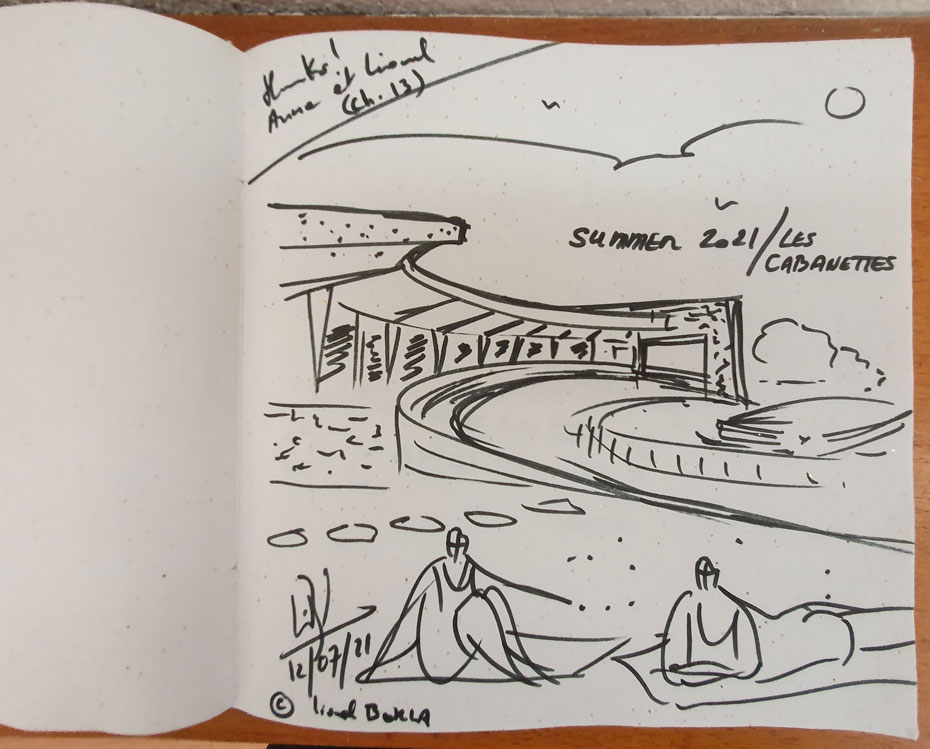 thanks!
Anne et Lionel
(ch. 13)
SUMMER 2021/LES
CABANETTES
12/07/21
© Lionel BOKLA